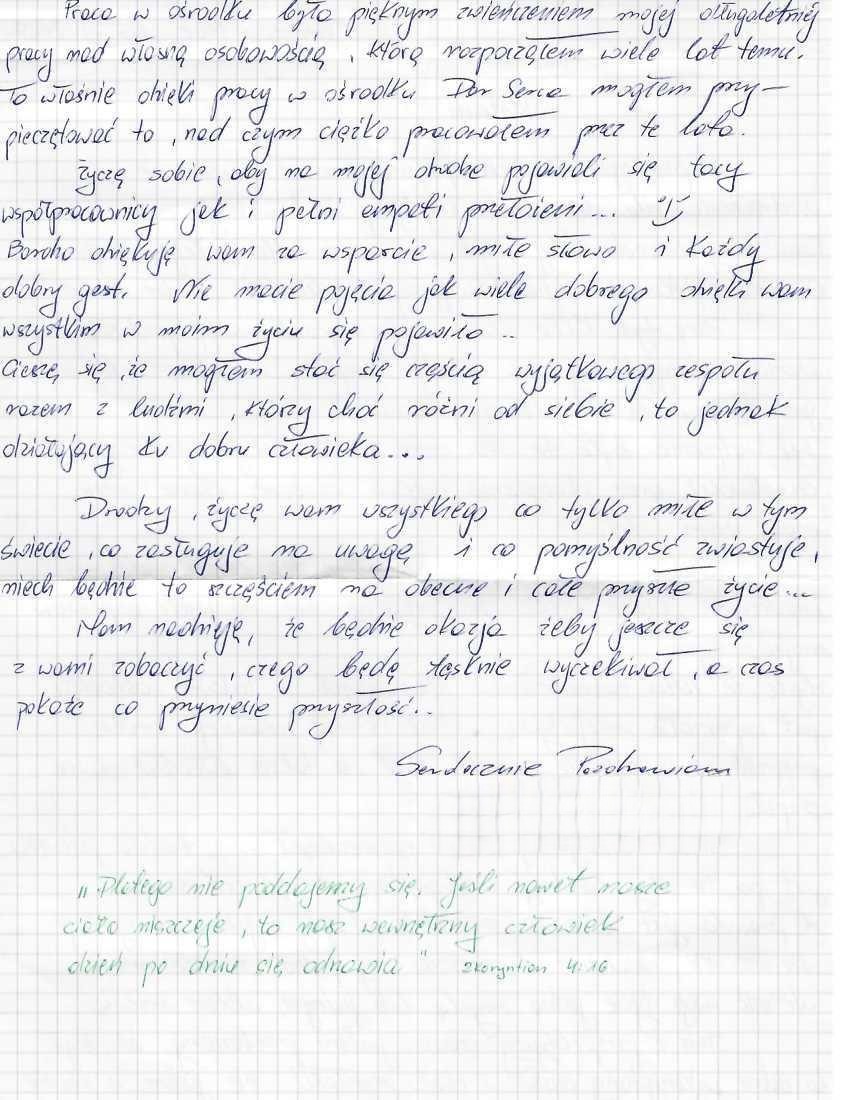 Praca w ośrodku było pięknym zwieńczeniem mojej długoletniej
pracy nad własną osobowością, którą rozpocząłem wiele lat temu.
To właśnie dzięki pracy w ośrodku Dar Serca mogłem przy-
pieczętować to, nad czym ciężko pracowałem przez te lata.
Życzę sobie, aby na mojej drodze pojawiali się tacy
współpracownicy jak i pełni empatii przełożeni... :)
Bardzo dziękuję wam za wsparcie, miłe słowa i każdy
dobry gest. Nie macie pojęcia jak wiele dobrego dzięki wam
wszystkim w moim życiu się pojawiło..
Cieszę się, że mogłem stać się częścią wyjątkowego zespołu
razem z ludźmi, którzy choć różni od siebie, to jednak
działający ku dobru człowieka...
Drodzy, życzę wam wszystkiego co tylko miłe w tym
świecie, co zasługuje na uwagę i co pomyślność zwiastuje,
niech będzie to szczęściem na obecne i całe przyszłe życie...
Mam nadzieję, że będzie okazja żeby jeszcze się
z wami zobaczyć, czego będę tęsknie wyczekiwał, a czas
pokaże co przyniesie przyszłość..
Serdecznie Pozdrawiam
„Dlatego nie poddajemy się. Jeśli nawet nasze
ciało niszczeje, to nasz wewnętrzny człowiek
dzień po dniu się odnawia" 2koryntian 4:16